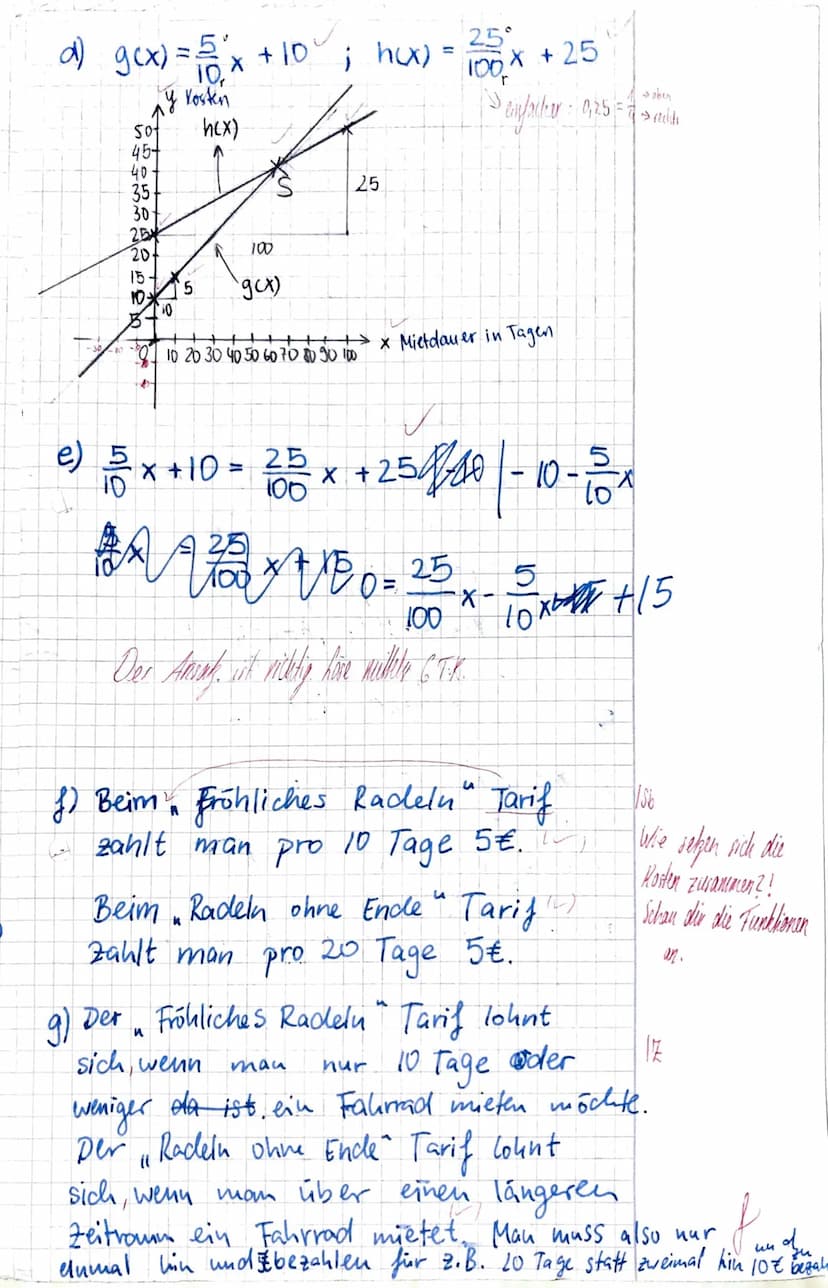 d) g(x) = 5/10 x + 10 ; h(x) = 25/100 x + 25
einfacher: 0,25 = 1/4 → oben → rechts
y Kosten
h(x)
50
45
40
35
30
25
20
15
10
5
0
S
25
100
5
10
g(x)
10 20 30 40 50 60 70 80 90 100
x Mietdauer in Tagen
e) 5/10 x + 10 = 25/100 x + 25 | - 10 - 5/10 x
0 = 25/100 x - 5/10 x + 15
Der Ansatz ist richtig, löse mittels GTR.
f) Beim „Fröhliches Radeln“ Tarif
zahlt man pro 10 Tage 5€.
Beim „Radeln ohne Ende“ Tarif
zahlt man pro 20 Tage 5€.
Wie setzen sich die
Kosten zusammen?!
Schau dir die Funktionen
an.
g) Der „Fröhliches Radeln“ Tarif lohnt
sich, wenn man nur 10 Tage oder
weniger da ist, ein Fahrrad mieten möchte.
Der „Radeln ohne Ende“ Tarif lohnt
sich, wenn man über einen längeren
Zeitraum ein Fahrrad mietet. Man muss also nur f
einmal hin und bezahlen für z.B. 20 Tage statt zweimal hin und 10€ zu